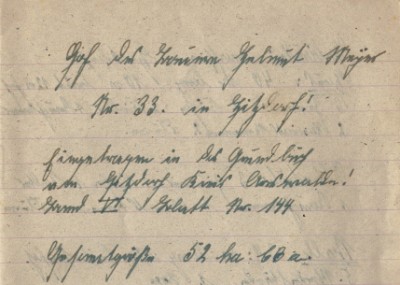 Hof des Bauern Helmut Meyer
Nr. 33. in Hitzdorf!
Eingetragen in das Grundbuch
von Hitzdorf Kreis Arnswalde!
Band VI Blatt Nr. 144
Gesamtgröße 52 ha: 66 a.